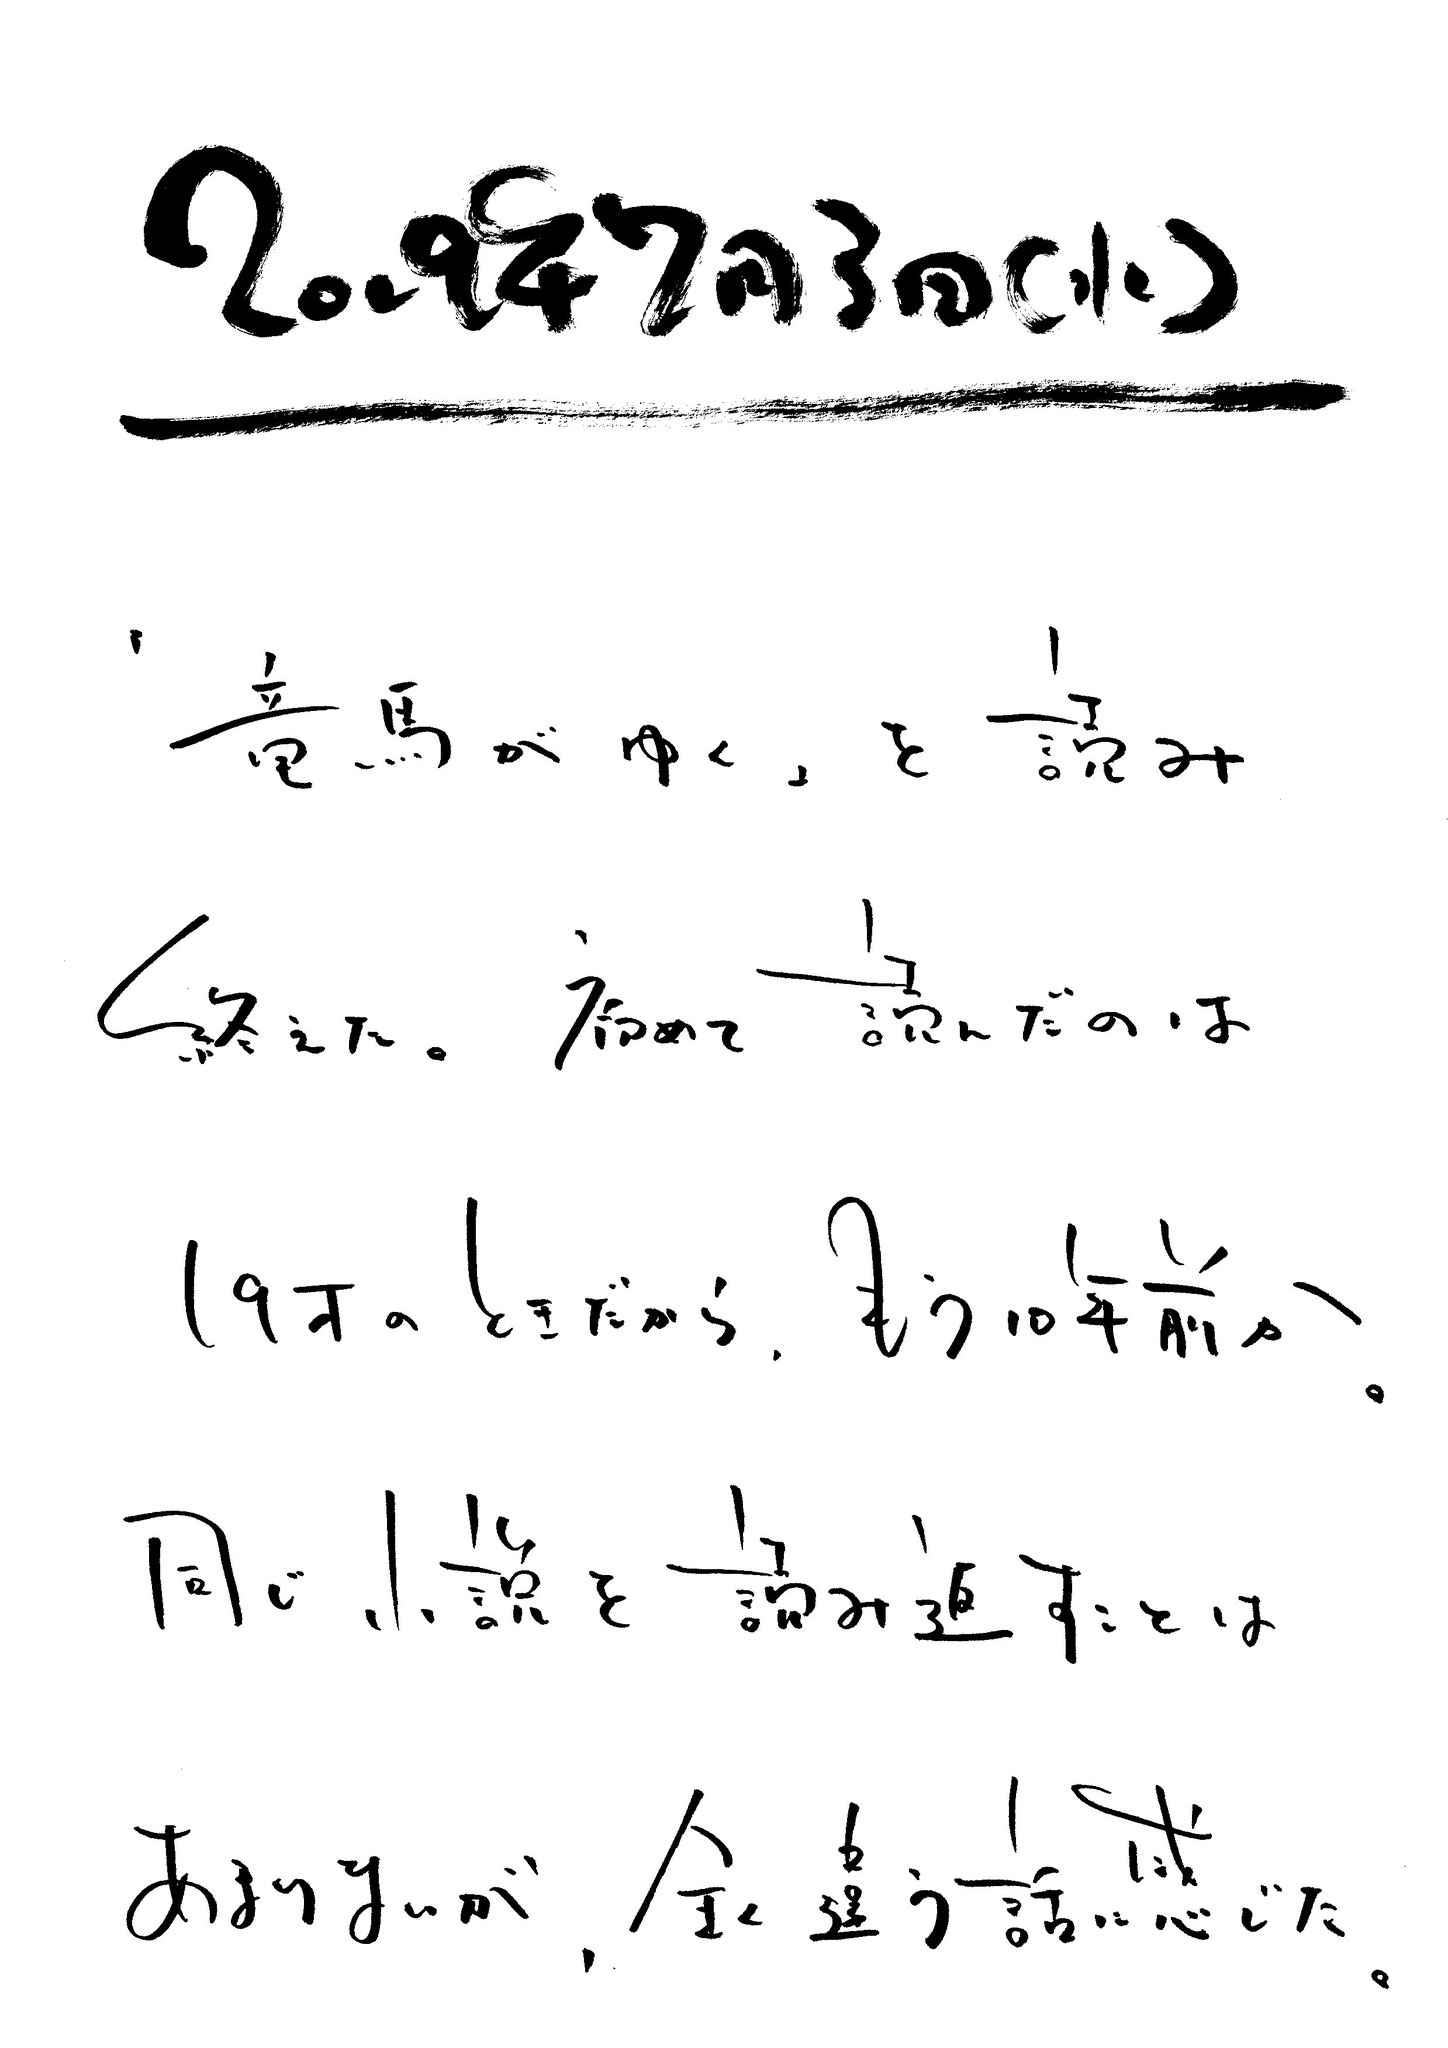 2019年7月3日(水)
「竜馬がゆく」を読み
終えた。初めて読んだのは
19才のときだから、もう10年前か。
同じ小説を読み返すことは
あまりないが、全く違う話に感じた。